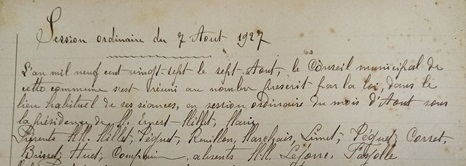 Session ordinaire du 7 Août 1927
L'an mil neuf cent vingt-sept le sept Août, le Conseil municipal de
cette commune s'est réuni au nombre prescrit par la loi, dans le
lieu habituel de ses séances, en session ordinaire du mois d'Août sous
la présidence de M. Ernest Hallet, Maire
Présents MM. Hallet, Péquet, Rouillon, Marchais, Limet, Péquet, Corset,
Brisset, Huet, absents MM. Lefévre, Fayolle